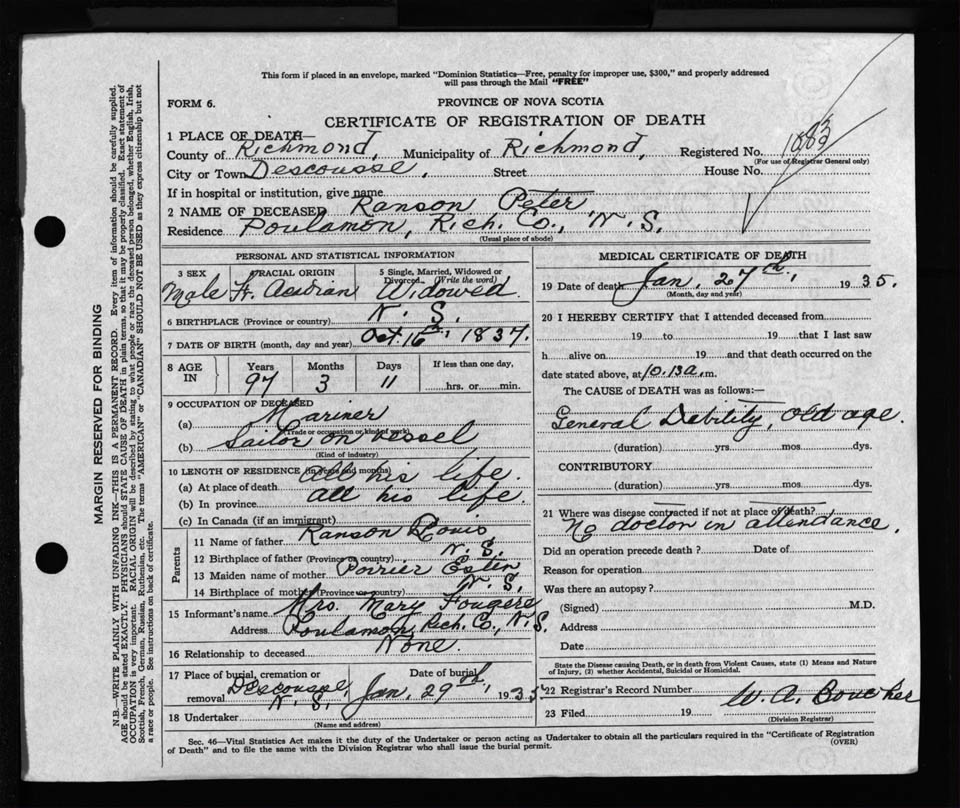 This form if placed in an envelope, marked "Dominion Statistics—Free, penalty for improper use, $300," and properly addressed
will pass through the Mail "FREE"
FORM 6.
PROVINCE OF NOVA SCOTIA
CERTIFICATE OF REGISTRATION OF DEATH
1 PLACE OF DEATH—
County of Richmond, Municipality of Richmond, Registered No. 1883
(For use of Registrar General only)
City or Town Descousse, Street House No.
If in hospital or institution, give name
2 NAME OF DECEASED Ranson Peter
Residence Poulamon, Rich. Co., N. S.
(Usual place of abode)
PERSONAL AND STATISTICAL INFORMATION
3 SEX RACIAL ORIGIN 5 Single, Married, Widowed or
Divorced (Write the word)
Male Fr. Acadian Widowed
6 BIRTHPLACE (Province or country) N. S.
7 DATE OF BIRTH (month, day and year) Oct. 16th, 1837.
8 AGE IN Years Months Days If less than one day,
97 3 11 hrs. or min.
9 OCCUPATION OF DECEASED
(a) Mariner
(Trade or occupation or kind of work)
(b) Sailor on vessel
(Kind of industry)
10 LENGTH OF RESIDENCE (in years and months)
(a) At place of death all his life
(b) In province all his life.
(c) In Canada (if an immigrant)
Parents
11 Name of father Ranson Louis
12 Birthplace of father (Province or country) N. S.
13 Maiden name of mother Poirier Ester
14 Birthplace of mother (Province or country) N. S.
15 Informant's name Mrs. Mary Fougere
Address Poulamon, Rich. Co., N. S.
16 Relationship to deceased None.
17 Place of burial, cremation or Date of burial
removal Descousse, N. S. Jan. 29th, 1935
18 Undertaker
(Name and address)
MEDICAL CERTIFICATE OF DEATH
19 Date of death Jan. 27th, 1935.
(Month, day and year)
20 I HEREBY CERTIFY that I attended deceased from
19 to 19 that I last saw
h alive on 19 and that death occurred on
date stated above, at 10.13 a.m.
The CAUSE of DEATH was as follows:—
General Debility, old age.
(duration) yrs. mos. dys.
CONTRIBUTORY
(duration) yrs. mos. dys.
21 Where was disease contracted if not at place of death?
No doctor in attendance.
Did an operation precede death? Date of
Reason for operation
Was there an autopsy?
(Signed) M.D.
Address
Date
State the Disease causing Death, or in death from Violent Causes, state (1) Means and Nature
of Injury, (2) whether Accidental, Suicidal or Homicidal.
22 Registrar's Record Number
23 Filed 19 W. A. Boucher
(Division Registrar)
Sec. 46—Vital Statistics Act makes it the duty of the Undertaker or person acting as Undertaker to obtain all the particulars required in the "Certificate of Registration
of Death" and to file the same with the Division Registrar who shall issue the burial permit. (OVER)
MARGIN RESERVED FOR BINDING
N.B.—WRITE PLAINLY WITH UNFADING INK—THIS IS A PERMANENT RECORD. Every item of information should be carefully supplied.
AGE should be stated EXACTLY. PHYSICIANS should STATE CAUSE OF DEATH in plain terms, so that it may be properly classified. Exact statement of
OCCUPATION is very important. RACIAL ORIGIN will be described by stating to what people or race the deceased person belonged, whether English, Irish,
Scottish, French, German, Russian, Ruthenian, etc. The terms "AMERICAN" or "CANADIAN" SHOULD NOT BE USED as they express citizenship but not
a race or people. See instructions on back of certificate.